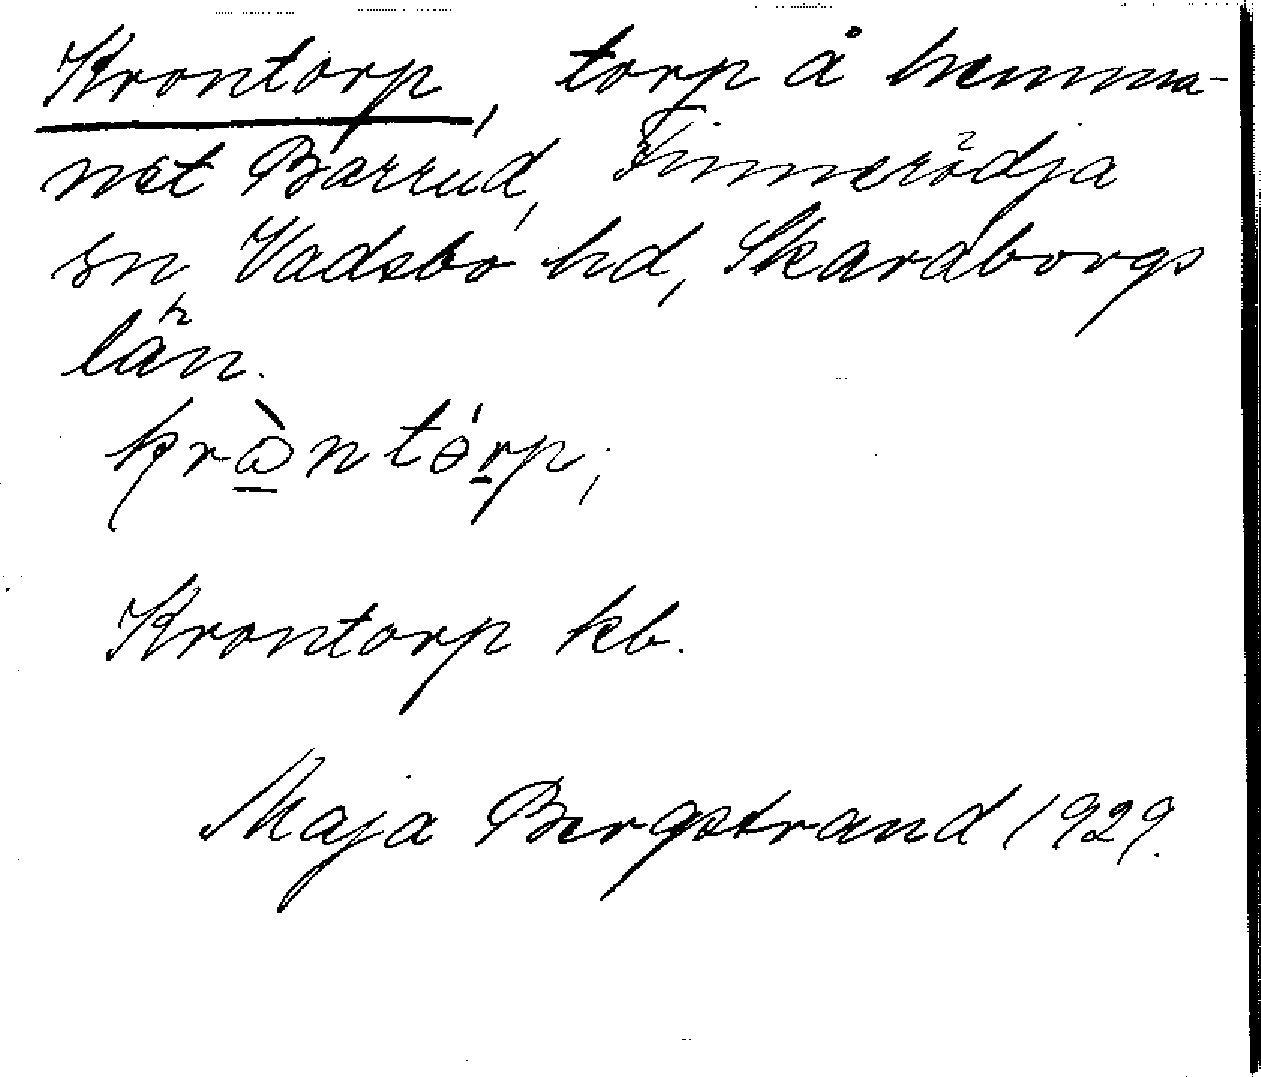 Krontorp, torp å hemma-
net Barrud, Finnerödja
sn, Vadsbo hd, Skaraborgs
län.
Krontorp kb.
Maja Bergstrand 1929.